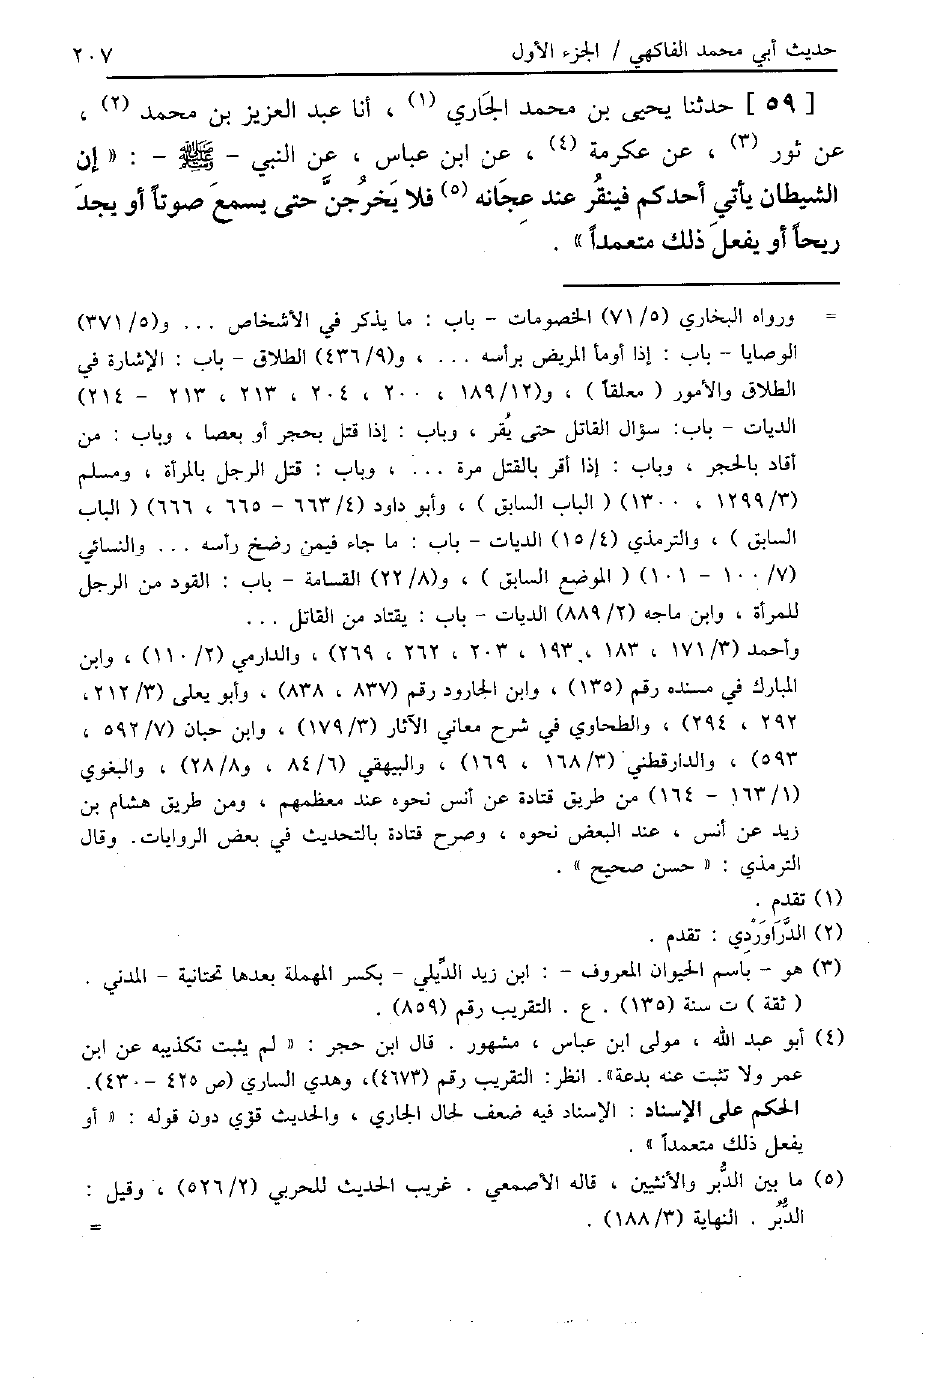 حديث أبي محمد الفاكهي / الجزء الأول ٢٠٧
[ ٥٩ ] حدثنا يحيى بن محمد الجَاري (١) ، أنا عبد العزيز بن محمد (٢) ،
عن ثور (٣) ، عن عكرمة (٤) ، عن ابن عباس ، عن النبي - ﷺ - : « إن
الشيطان يأتي أحدكم فينقُر عند عِجَانه (٥) فلا يَخرُجنَّ حتى يسمعَ صوتاً أو يجدَ
ريحاً أو يفعلَ ذلك متعمداً » .
= ورواه البخاري (٥/ ٧١) الخصومات - باب : ما يذكر في الأشخاص ... و(٥/ ٣٧١)
الوصايا - باب : إذا أومأ المريض برأسه ... ، و(٩/ ٤٣٦) الطلاق - باب : الإشارة في
الطلاق والأمور ( معلقاً ) ، و(١٢/ ١٨٩ ، ٢٠٠ ، ٢٠٤ ، ٢١٣ ، ٢١٣ - ٢١٤)
الديات - باب: سؤال القاتل حتى يُقر ، وباب : إذا قتل بحجر أو بعصا ، وباب : من
أقاد بالحجر ، وباب : إذا أقر بالقتل مرة ... ، وباب : قتل الرجل بالمرأة ، ومسلم
(٣/ ١٢٩٩ ، ١٣٠٠) ( الباب السابق ) ، وأبو داود (٤/ ٦٦٣ - ٦٦٥ ، ٦٦٦) ( الباب
السابق ) ، والترمذي (٤/ ١٥) الديات - باب : ما جاء فيمن رضخ رأسه ... والنسائي
(٧/ ١٠٠ - ١٠١) ( الموضع السابق ) ، و(٨/ ٢٢) القسامة - باب : القود من الرجل
للمرأة ، وابن ماجه (٢/ ٨٨٩) الديات - باب : يقتاد من القاتل ...
وأحمد (٣/ ١٧١ ، ١٨٣ ، ١٩٣ ، ٢٠٣ ، ٢٦٢ ، ٢٦٩) ، والدارمي (٢/ ١١٠) ، وابن
المبارك في مسنده رقم (١٣٥) ، وابن الجارود رقم (٨٣٧ ، ٨٣٨) ، وأبو يعلى (٣/ ٢١٢ ،
٢٩٢ ، ٢٩٤) ، والطحاوي في شرح معاني الآثار (٣/ ١٧٩) ، وابن حبان (٧/ ٥٩٢ ،
٥٩٣) ، والدارقطني (٣/ ١٦٨ ، ١٦٩) ، والبيهقي (٦/ ٨٤ ، و٨/ ٢٨) ، والبغوي
(١/ ١٦٣ - ١٦٤) من طريق قتادة عن أنس نحوه عند معظمهم ، ومن طريق هشام بن
زيد عن أنس ، عند البعض نحوه ، وصرح قتادة بالتحديث في بعض الروايات. وقال
الترمذي : « حسن صحيح » .
(١) تقدم .
(٢) الدَّرَاوَرْدِي : تقدم .
(٣) هو - باسم الحيوان المعروف - : ابن زيد الدِّيلي - بكسر المهملة بعدها تحتانية - المدني .
( ثقة ) ت سنة (١٣٥) . ع . التقريب رقم (٨٥٩) .
(٤) أبو عبد الله ، مولى ابن عباس ، مشهور . قال ابن حجر : « لم يثبت تكذيبه عن ابن
عمر ولا تثبت عنه بدعة». انظر: التقريب رقم (٤٦٧٣)، وهدي الساري (ص ٤٢٥ - ٤٣٠).
الحكم على الإسناد : الإسناد فيه ضعف لحال الجاري ، والحديث قوّي دون قوله : « أو
يفعل ذلك متعمداً » .
(٥) ما بين الدُّبر والأنثيين ، قاله الأصمعي . غريب الحديث للحربي (٢/ ٥٢٦) ، وقيل :
الدُّبُر . النهاية (٣/ ١٨٨) . =